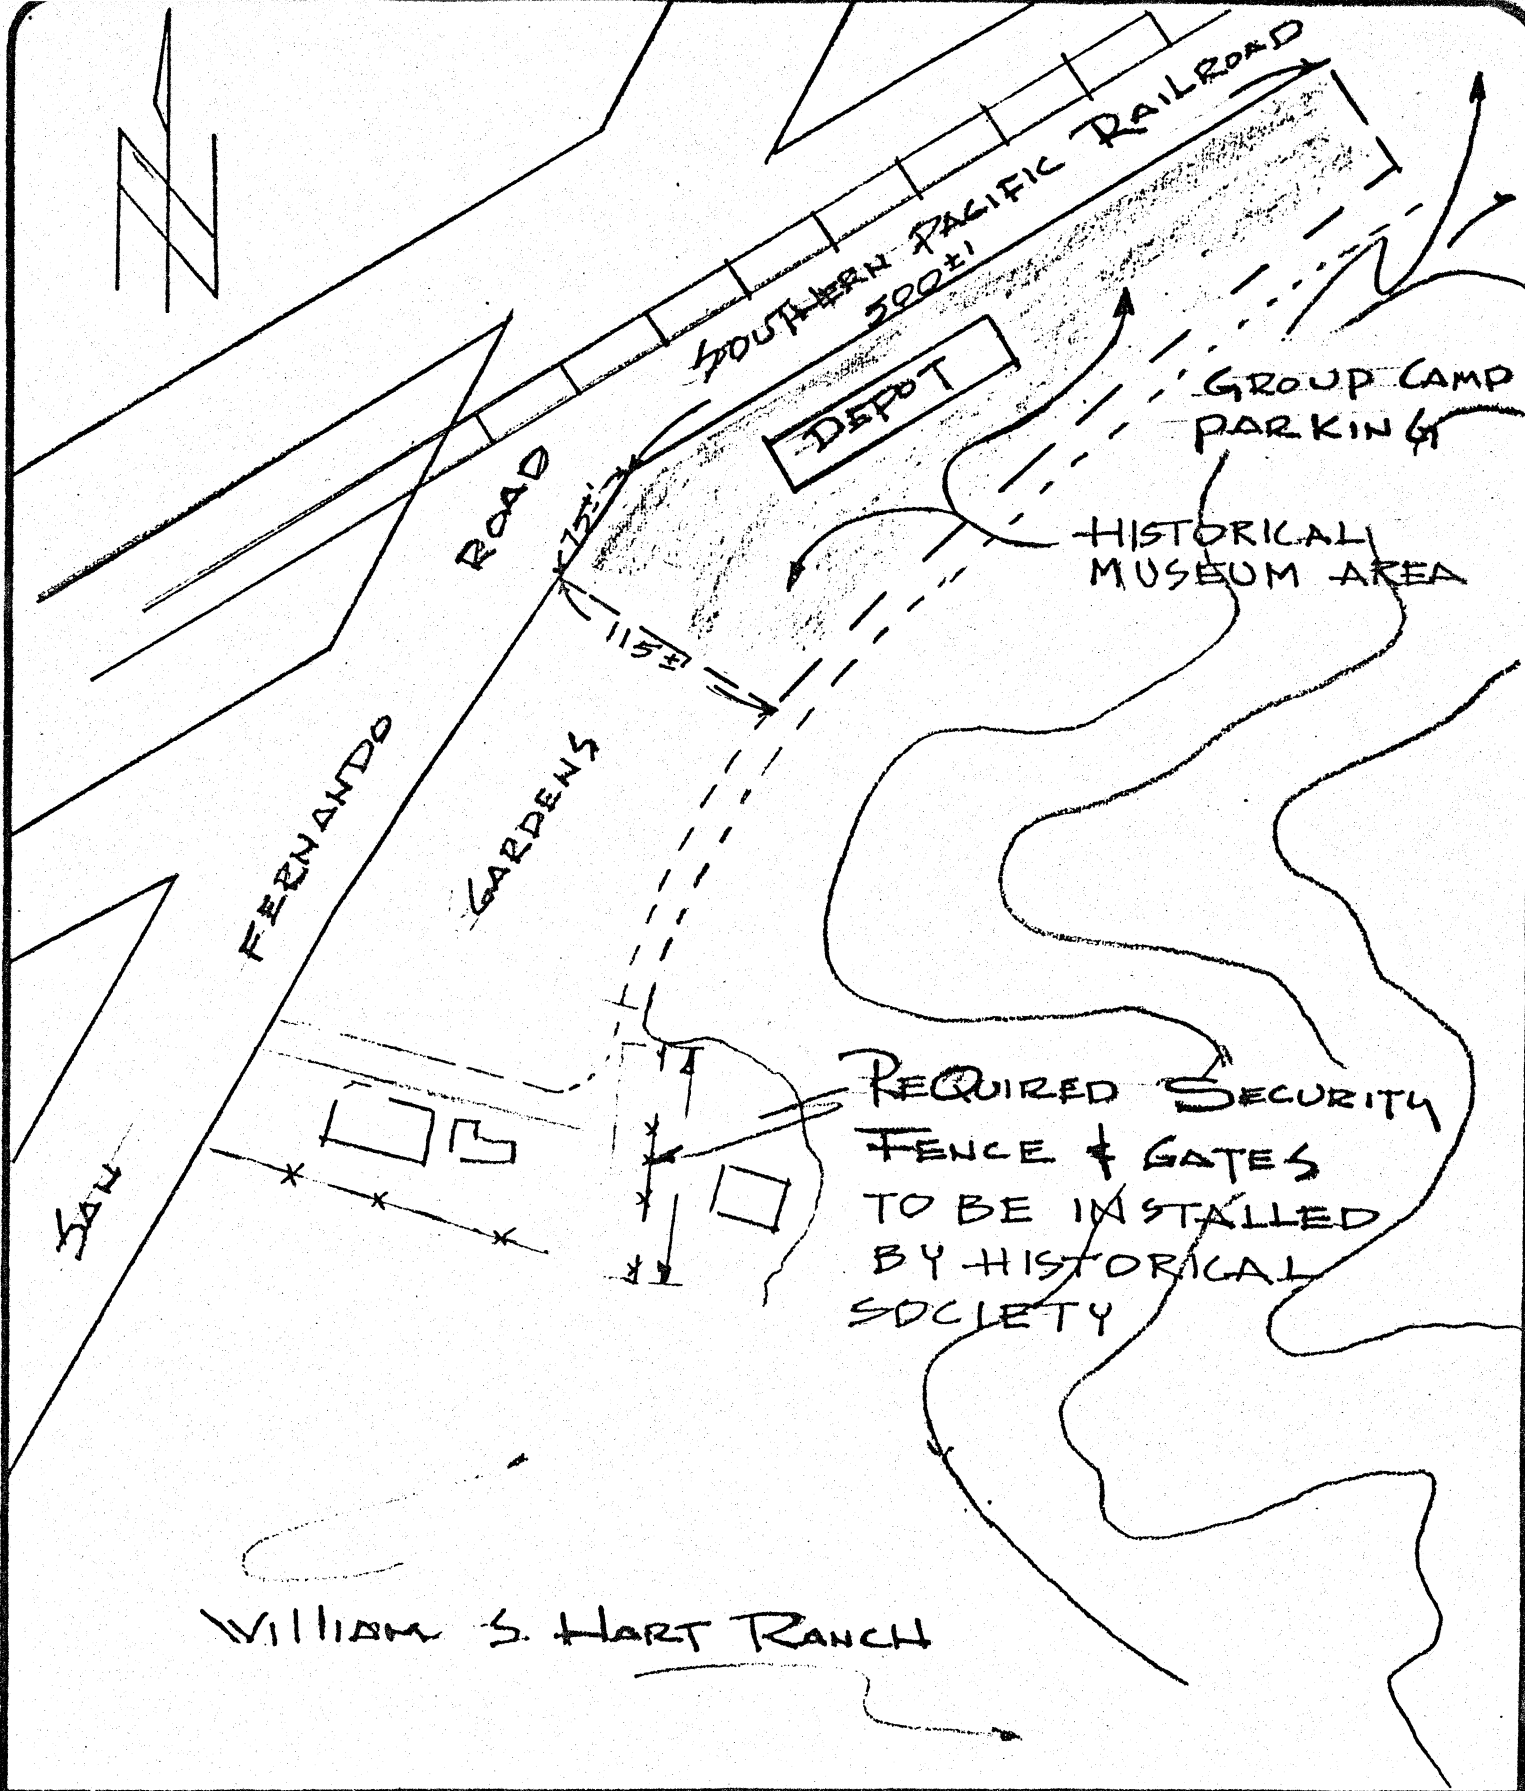 N
SOUTHERN PACIFIC RAILROAD
500±'
DEPOT
75±'
115±'
GROUP CAMP
PARKING
HISTORICAL
MUSEUM AREA
SAN FERNANDO ROAD
GARDENS
REQUIRED SECURITY
FENCE & GATES
TO BE INSTALLED
BY HISTORICAL
SOCIETY
WILLIAM S. HART RANCH